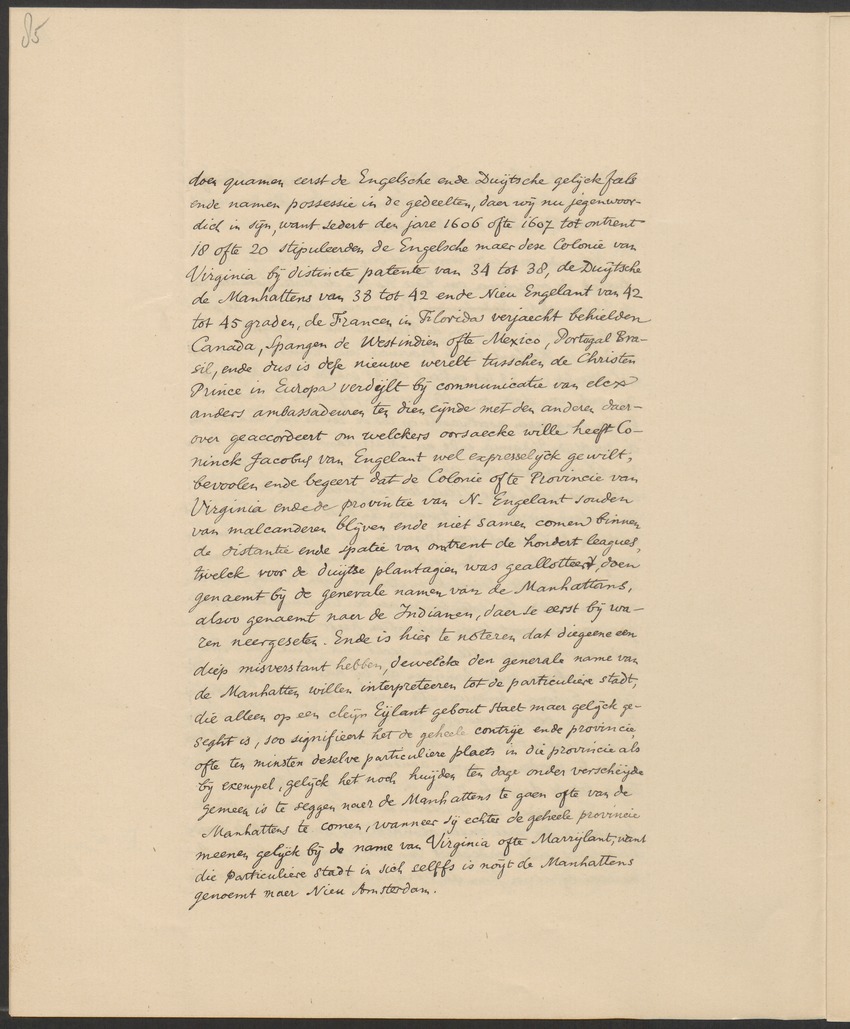 85
doen quamen eerst de Engelsche ende Duijtsche gelijckfals
ende namen possessie in de gedeelten, daer wij nu jegenwoor-
dich in sijn, want sedert den jare 1606 ofte 1607 tot ontrent
18 ofte 20 stipuleerden de Engelsche maer dese Colonie van
Virginia bij distincte patente van 34 tot 38, de Duijtsche
de Manhattens van 38 tot 42 ende Nieu Engelant van 42
tot 45 graden, de Francen in Florida verjaecht behielden
Canada, Spangen de Westindien ofte Mexico, Portugal Bra-
sil, ende dus is dese nieuwe werelt tusschen de Christen
Prince in Europa verdijlt bij communicatie van elcx
anders ambassadeuren ten dien eijnde met den anderen daer-
over geaccordeert om welckers oorsaecke wille heeft Co-
ninck Jacobus van Engelant wel expresselijck gewilt,
bevoolen ende begeert dat de Colonie ofte Provincie van
Virginia ende de provintie van N- Engelant souden
van malcanderen blijven ende niet samen comen binnen
de distantie ende spatie van omtrent de hondert leagues,
twelck voor de duijtse plantagien was geallotteerd, doen
genaemt bij de generale namen van de Manhattans,
alsoo genaemt naer de Indianen, daer se eerst bij wa-
ren neergeseten. Ende is hier te noteren dat diegeene een
diep misverstant hebben, dewelcke den generale name van
de Manhatten willen interpreteeren tot de particuliere stadt,
die alleen op een cleijn Eijlant gebout staet maer gelijck ge-
seght is, soo signifieert het de geheele contrije ende provincie,
ofte ten minsten deselve particuliere plaets in die provincie als
bij exempel, gelijck het noch huijden ten dage onder verscheijde
gemeen is te seggen naer de Manhattens te gaen ofte van de
Manhattens te comen, wanneer sij echter de geheele provincie
meenen gelijck bij de name van Virginia ofte Marrijlant; want
die particuliere stadt in sich selffs is noijt de Manhattens
genoemt maer Nieu Amsterdam.